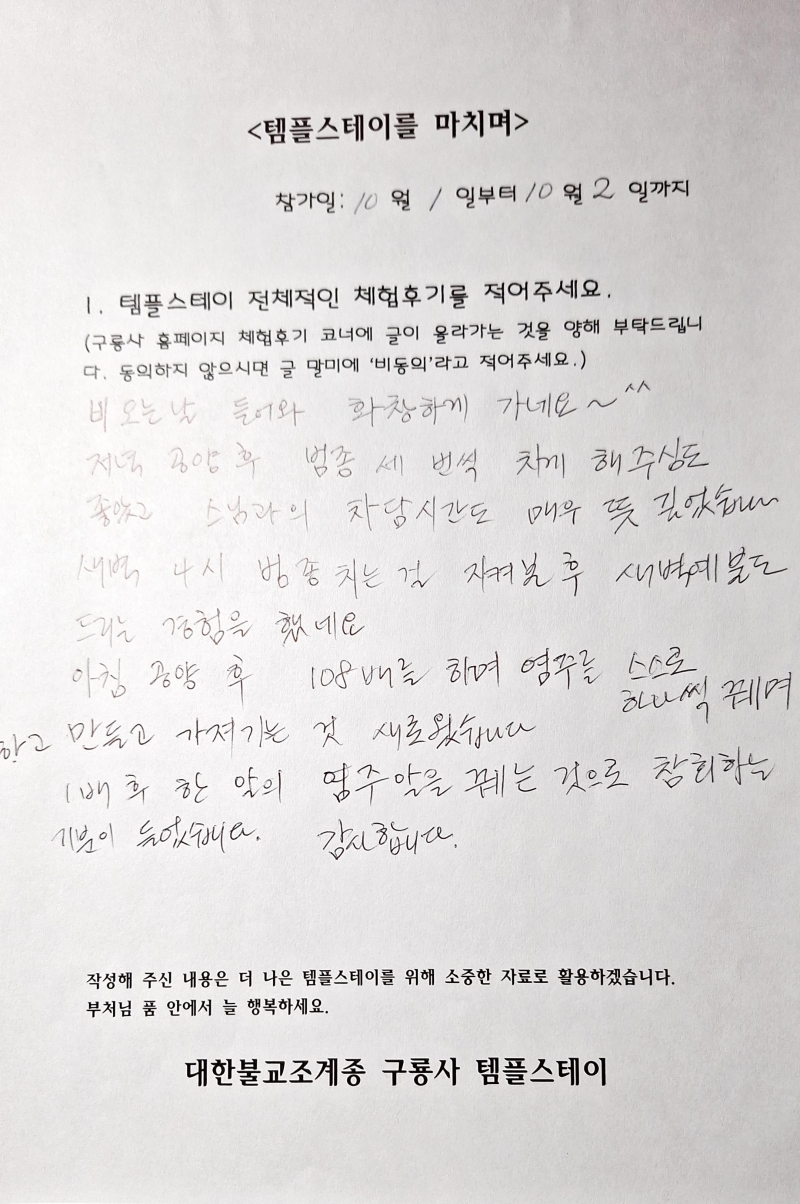 <템플스테이를 마치며>
참가일: 10 월 1 일부터 10 월 2 일까지
1. 템플스테이 전체적인 체험후기를 적어주세요.
(구룡사 홈페이지 체험후기 코너에 글이 올라가는 것을 양해 부탁드립니
다. 동의하지 않으시면 글 말미에 '비동의'라고 적어주세요.)
비오는날 들어와 화창하게 가네요~^^
저녁 공양 후 범종 세 번씩 치게 해주심도
좋았고 스님과의 차담시간도 매우 뜻 깊었습니다
새벽 4시 범종 치는 걸 지켜본 후 새벽예불도
드리는 경험을 했네요
아침 공양 후 108배를 하며 염주를 스스로
하나씩 꿰며
하고 만들고 가져가는 것 새로웠습니다
1배 후 한 알의 염주알을 꿰는 것으로 참회하는
기분이 들었습니다. 감사합니다.
작성해 주신 내용은 더 나은 템플스테이를 위해 소중한 자료로 활용하겠습니다.
부처님 품 안에서 늘 행복하세요.
대한불교조계종 구룡사 템플스테이